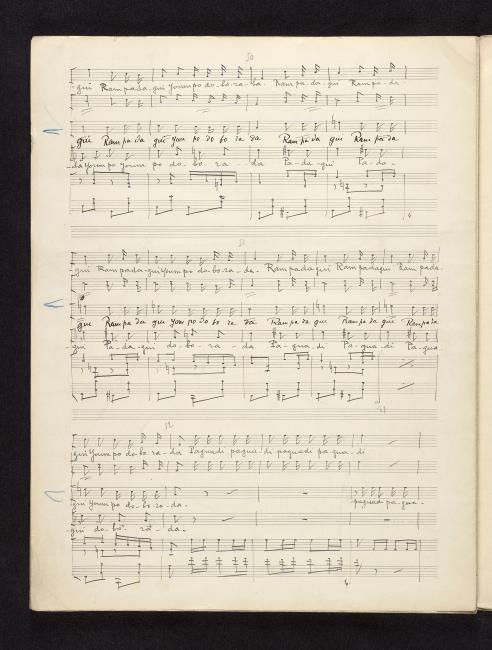 50
-gui Rampada-gui youmpo do-bo-za-da. Rampa-da-gui Rampa-da
gui Rampada gui Youm po do bo za da Rampa da gui Rampa da
da youmpo youm po do-bo-za-da Pa-da-gui Pa-da-
51
-gui Rampada-gui youmpo do-bo-za-da. Rampadagui Rampadagui Rampada
gui Rampa da gui youm po do bo za da Rampa da gui Rampa da gui Rampada
-gui Pa-da-gui do-bo-za-da Pa-gua-di Pa-gua-di Pa-gua
52
gui youmpo do-bo-za-da Paguadi pagua-di paguadi pa gua-di
gui youmpo do-bo-za-da. paguadi pa-gua-
gui do-bo za-da.